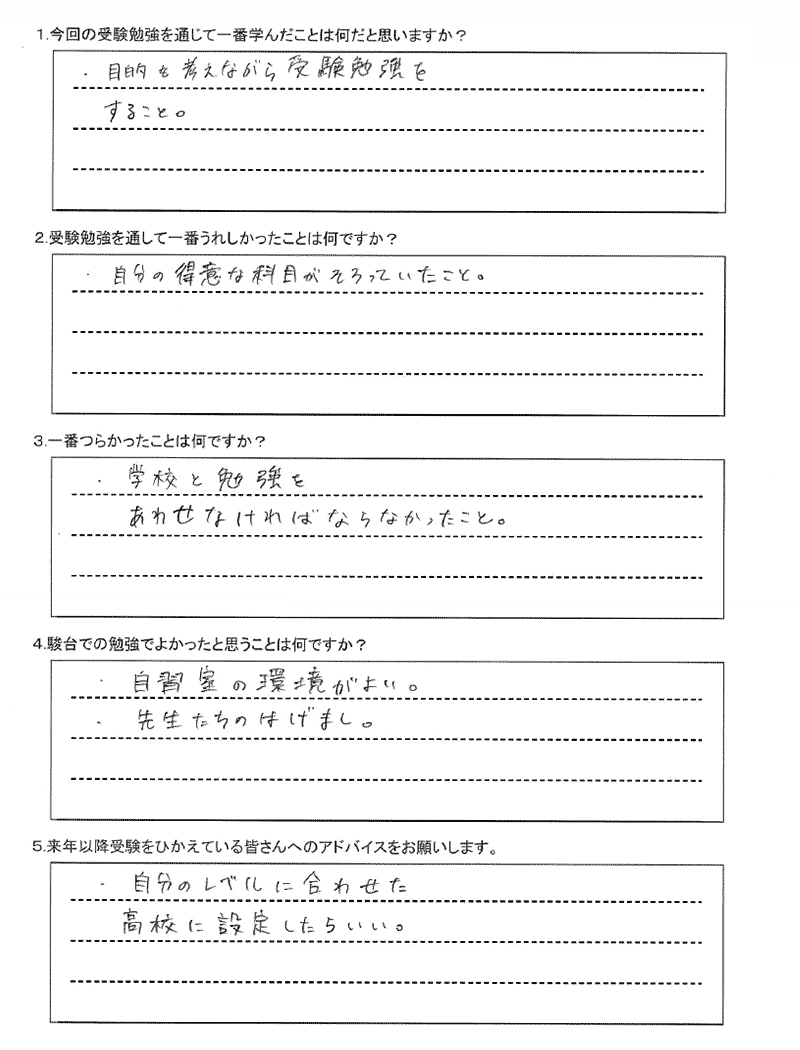 1.今回の受験勉強を通じて一番学んだことは何だと思いますか？
・目的を考えながら受験勉強を
すること。
2.受験勉強を通して一番うれしかったことは何ですか？
・自分の得意な科目がそろっていたこと。
3.一番つらかったことは何ですか？
・学校と勉強を
あわせなければならなかったこと。
4.駿台での勉強でよかったと思うことは何ですか？
・自習室の環境がよい。
・先生たちのはげまし。
5.来年以降受験をひかえている皆さんへのアドバイスをお願いします。
・自分のレベルに合わせた
高校に設定したらいい。